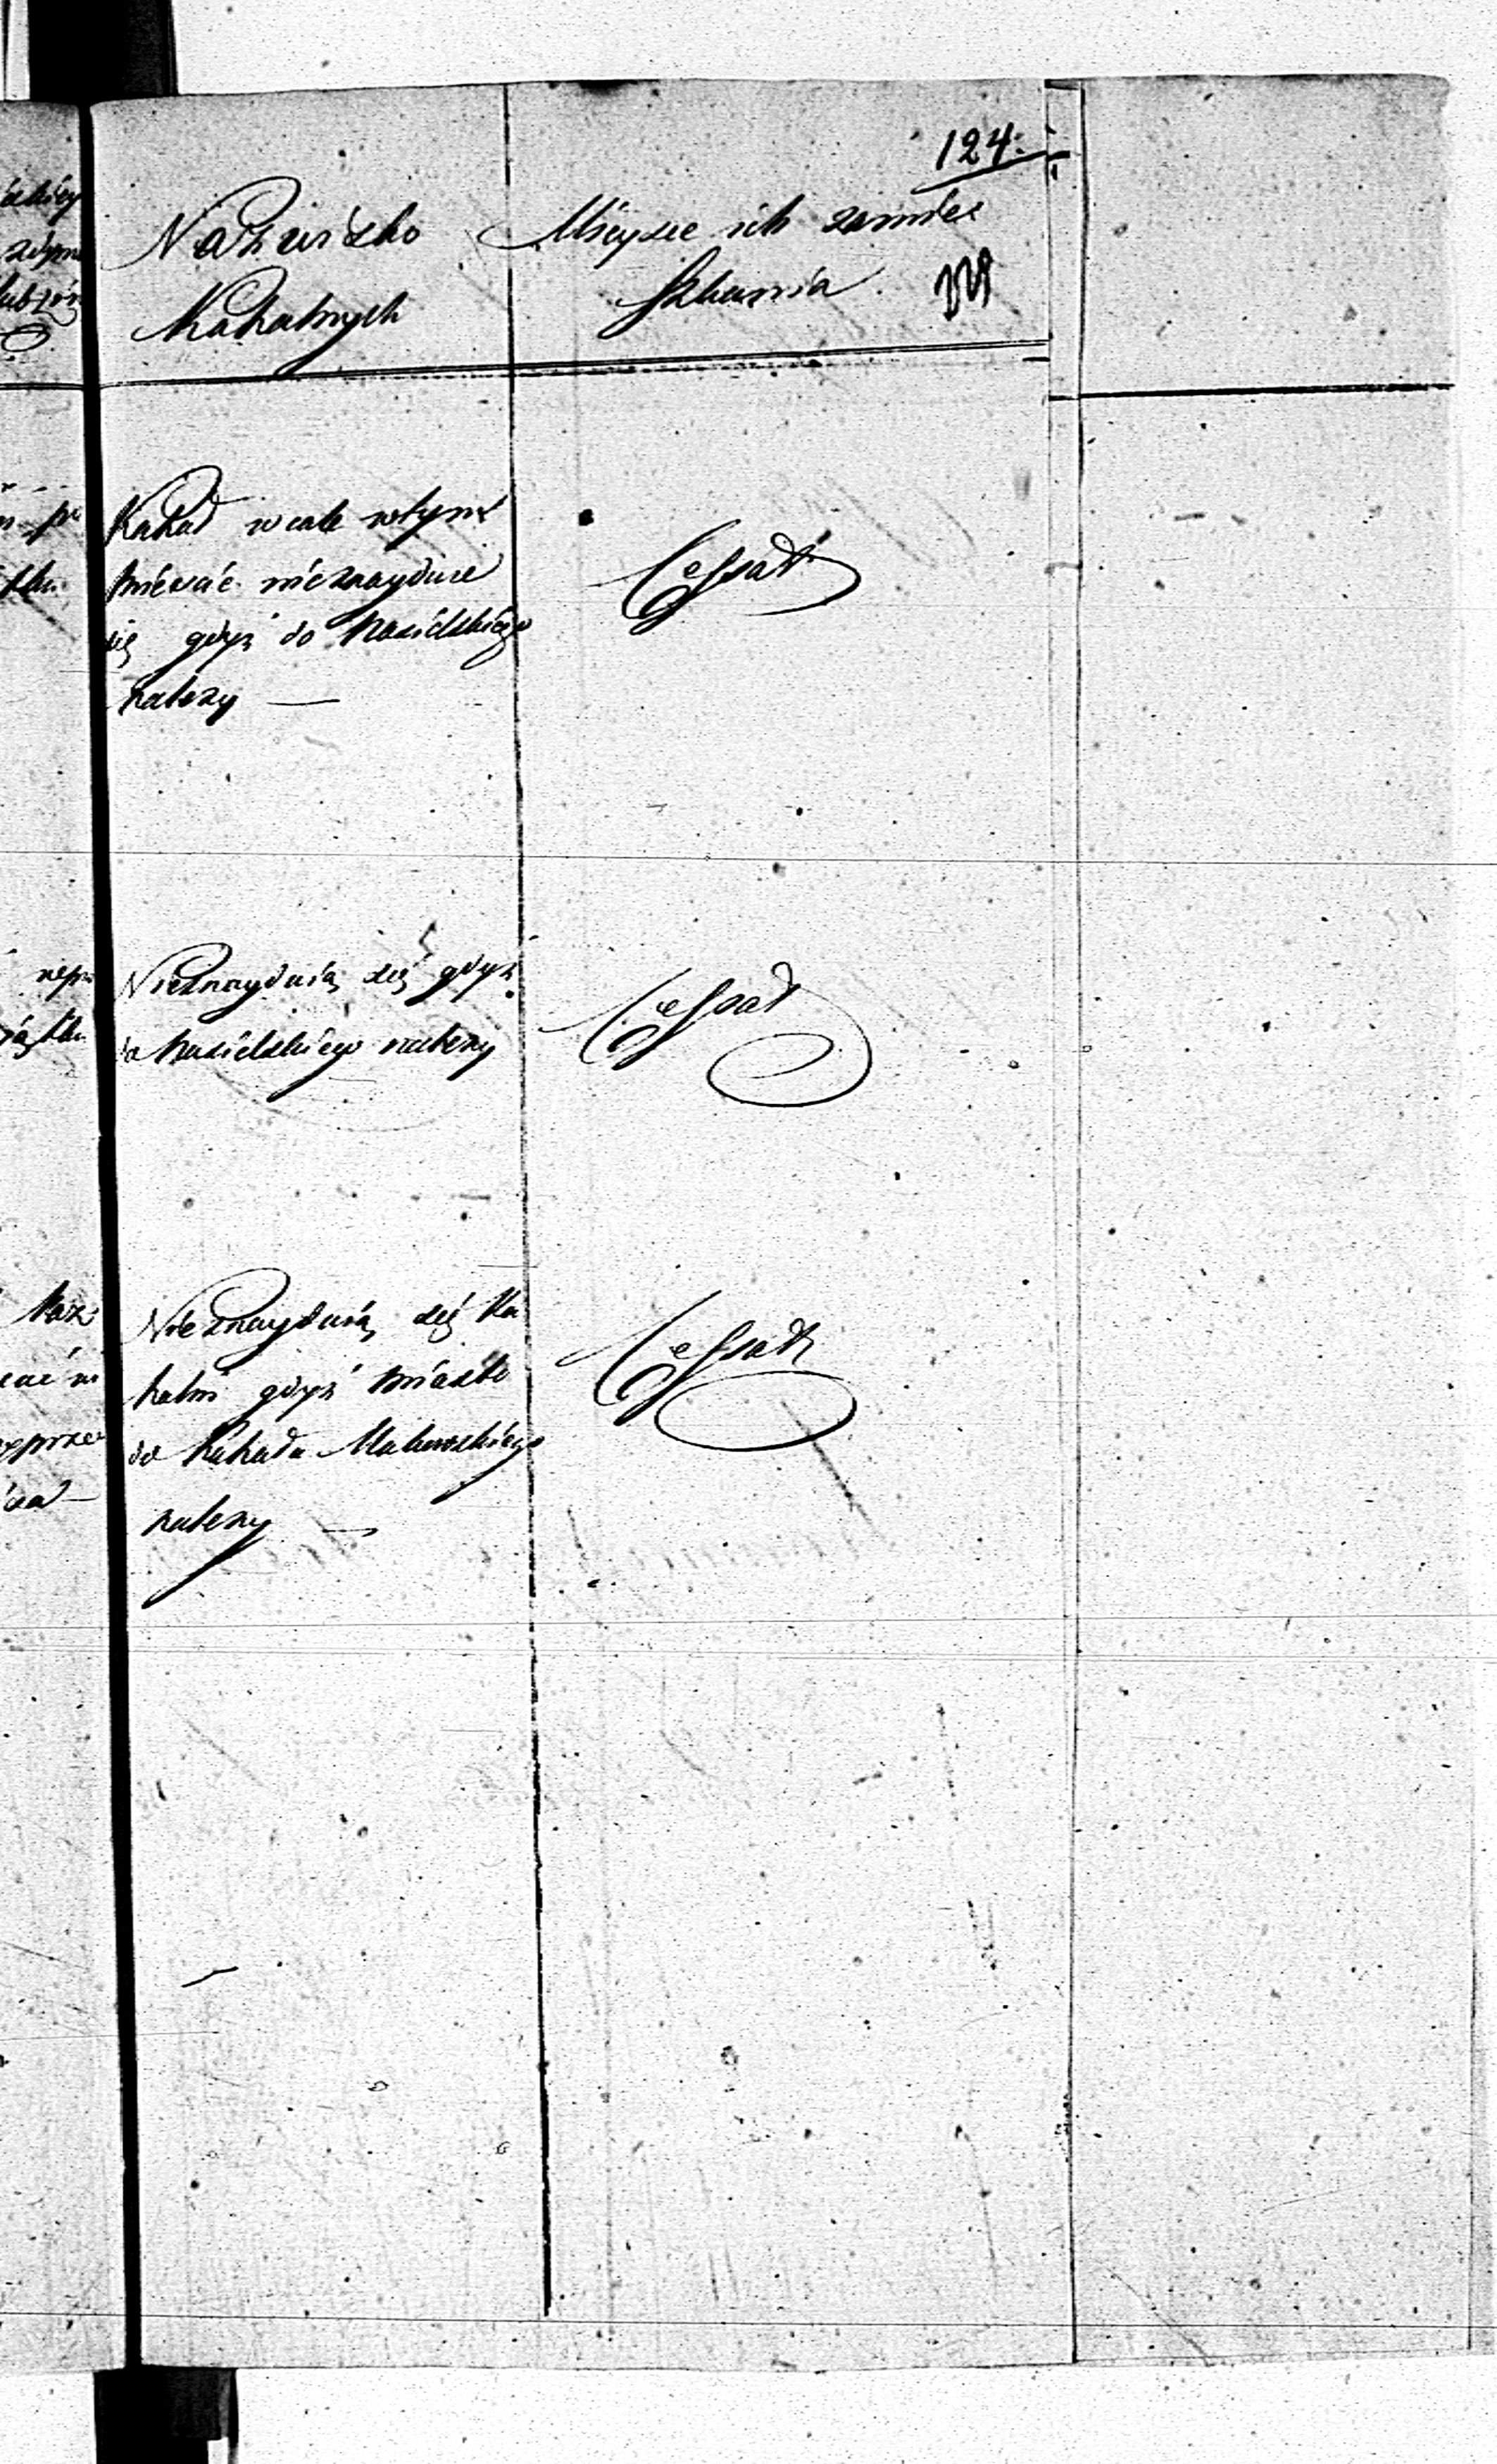 124.
Nazwisko
Kahalnych
Mieysce ich zamiés
szkania.
Kahał w cale w tym
mieście nieznayduie
się gdyż do Nasielskiego
należy —
Cessat
Nieznayduią się gdyż
do Nasielskiego należy
Cessat
Nieznayduią się Ka
halni gdyż miasto
do Kahału Makowskiego
należy —
Cessat